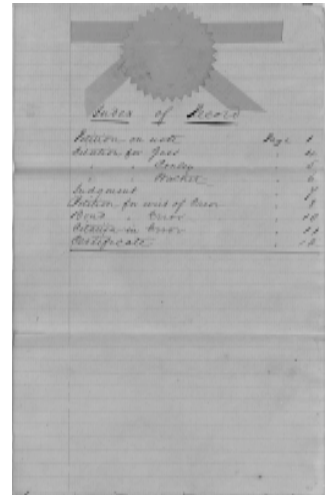 Index of Record
Petition on note Page 1
Citation for Gues " 4
" " Conley " 5
" " Hachet " 6
Judgment " 7
Petition for writ of Error " 8
Bond " Error " 10
Citation in Error " 11
Certificate " 12